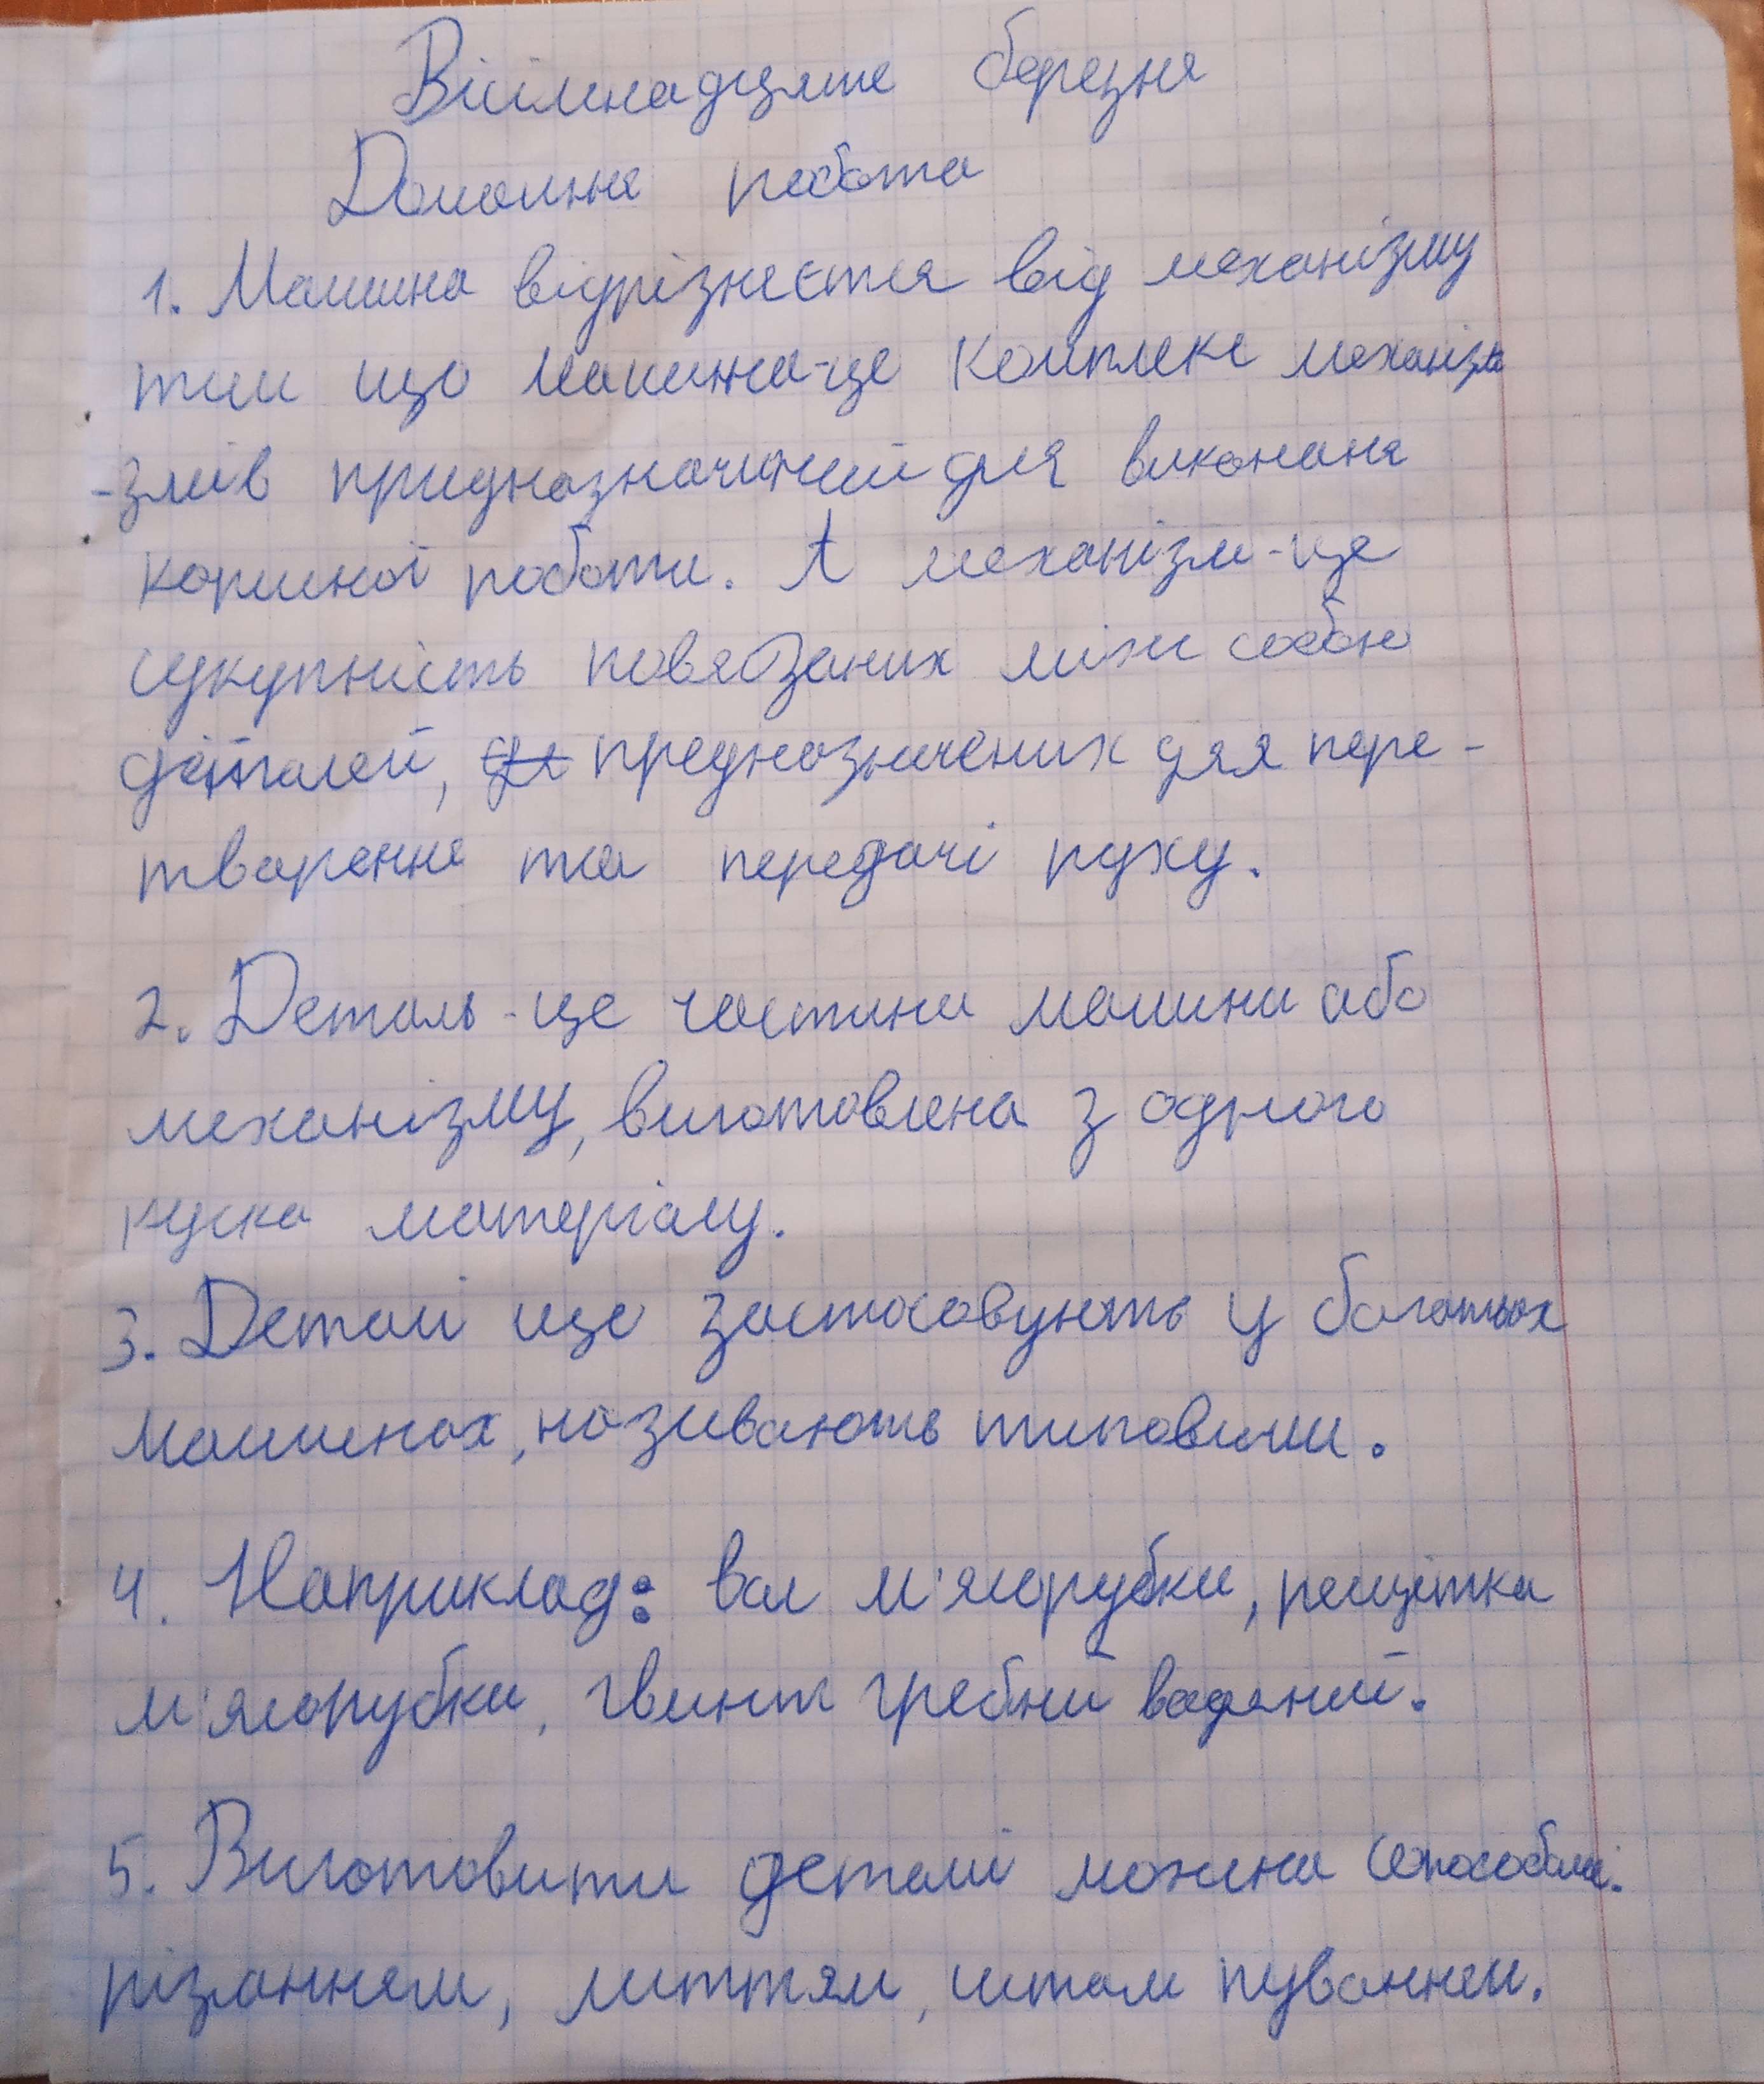 Вісімнадцяте березня
Домашня робота
1. Машина відрізняється від механізму
тим що машина-це комплекс механізм
-змів придназначиний для виконаня
корисної роботи. А механізм-це
сукупність повязаних між собою
деталей, предназначених для пере-
творення та передачі руху.
2. Деталь-це частина машини або
механізму, виготовлена з одного
куска матеріалу.
3. Деталі що застосовують у багатьох
машинах, називають типовими.
4. Наприклад: вал м'ясорубки, решітка
м'ясорубки, гвинт гребний водяний.
5. Виготовити деталі можна способами:
різанням, литтям, штампуванням.